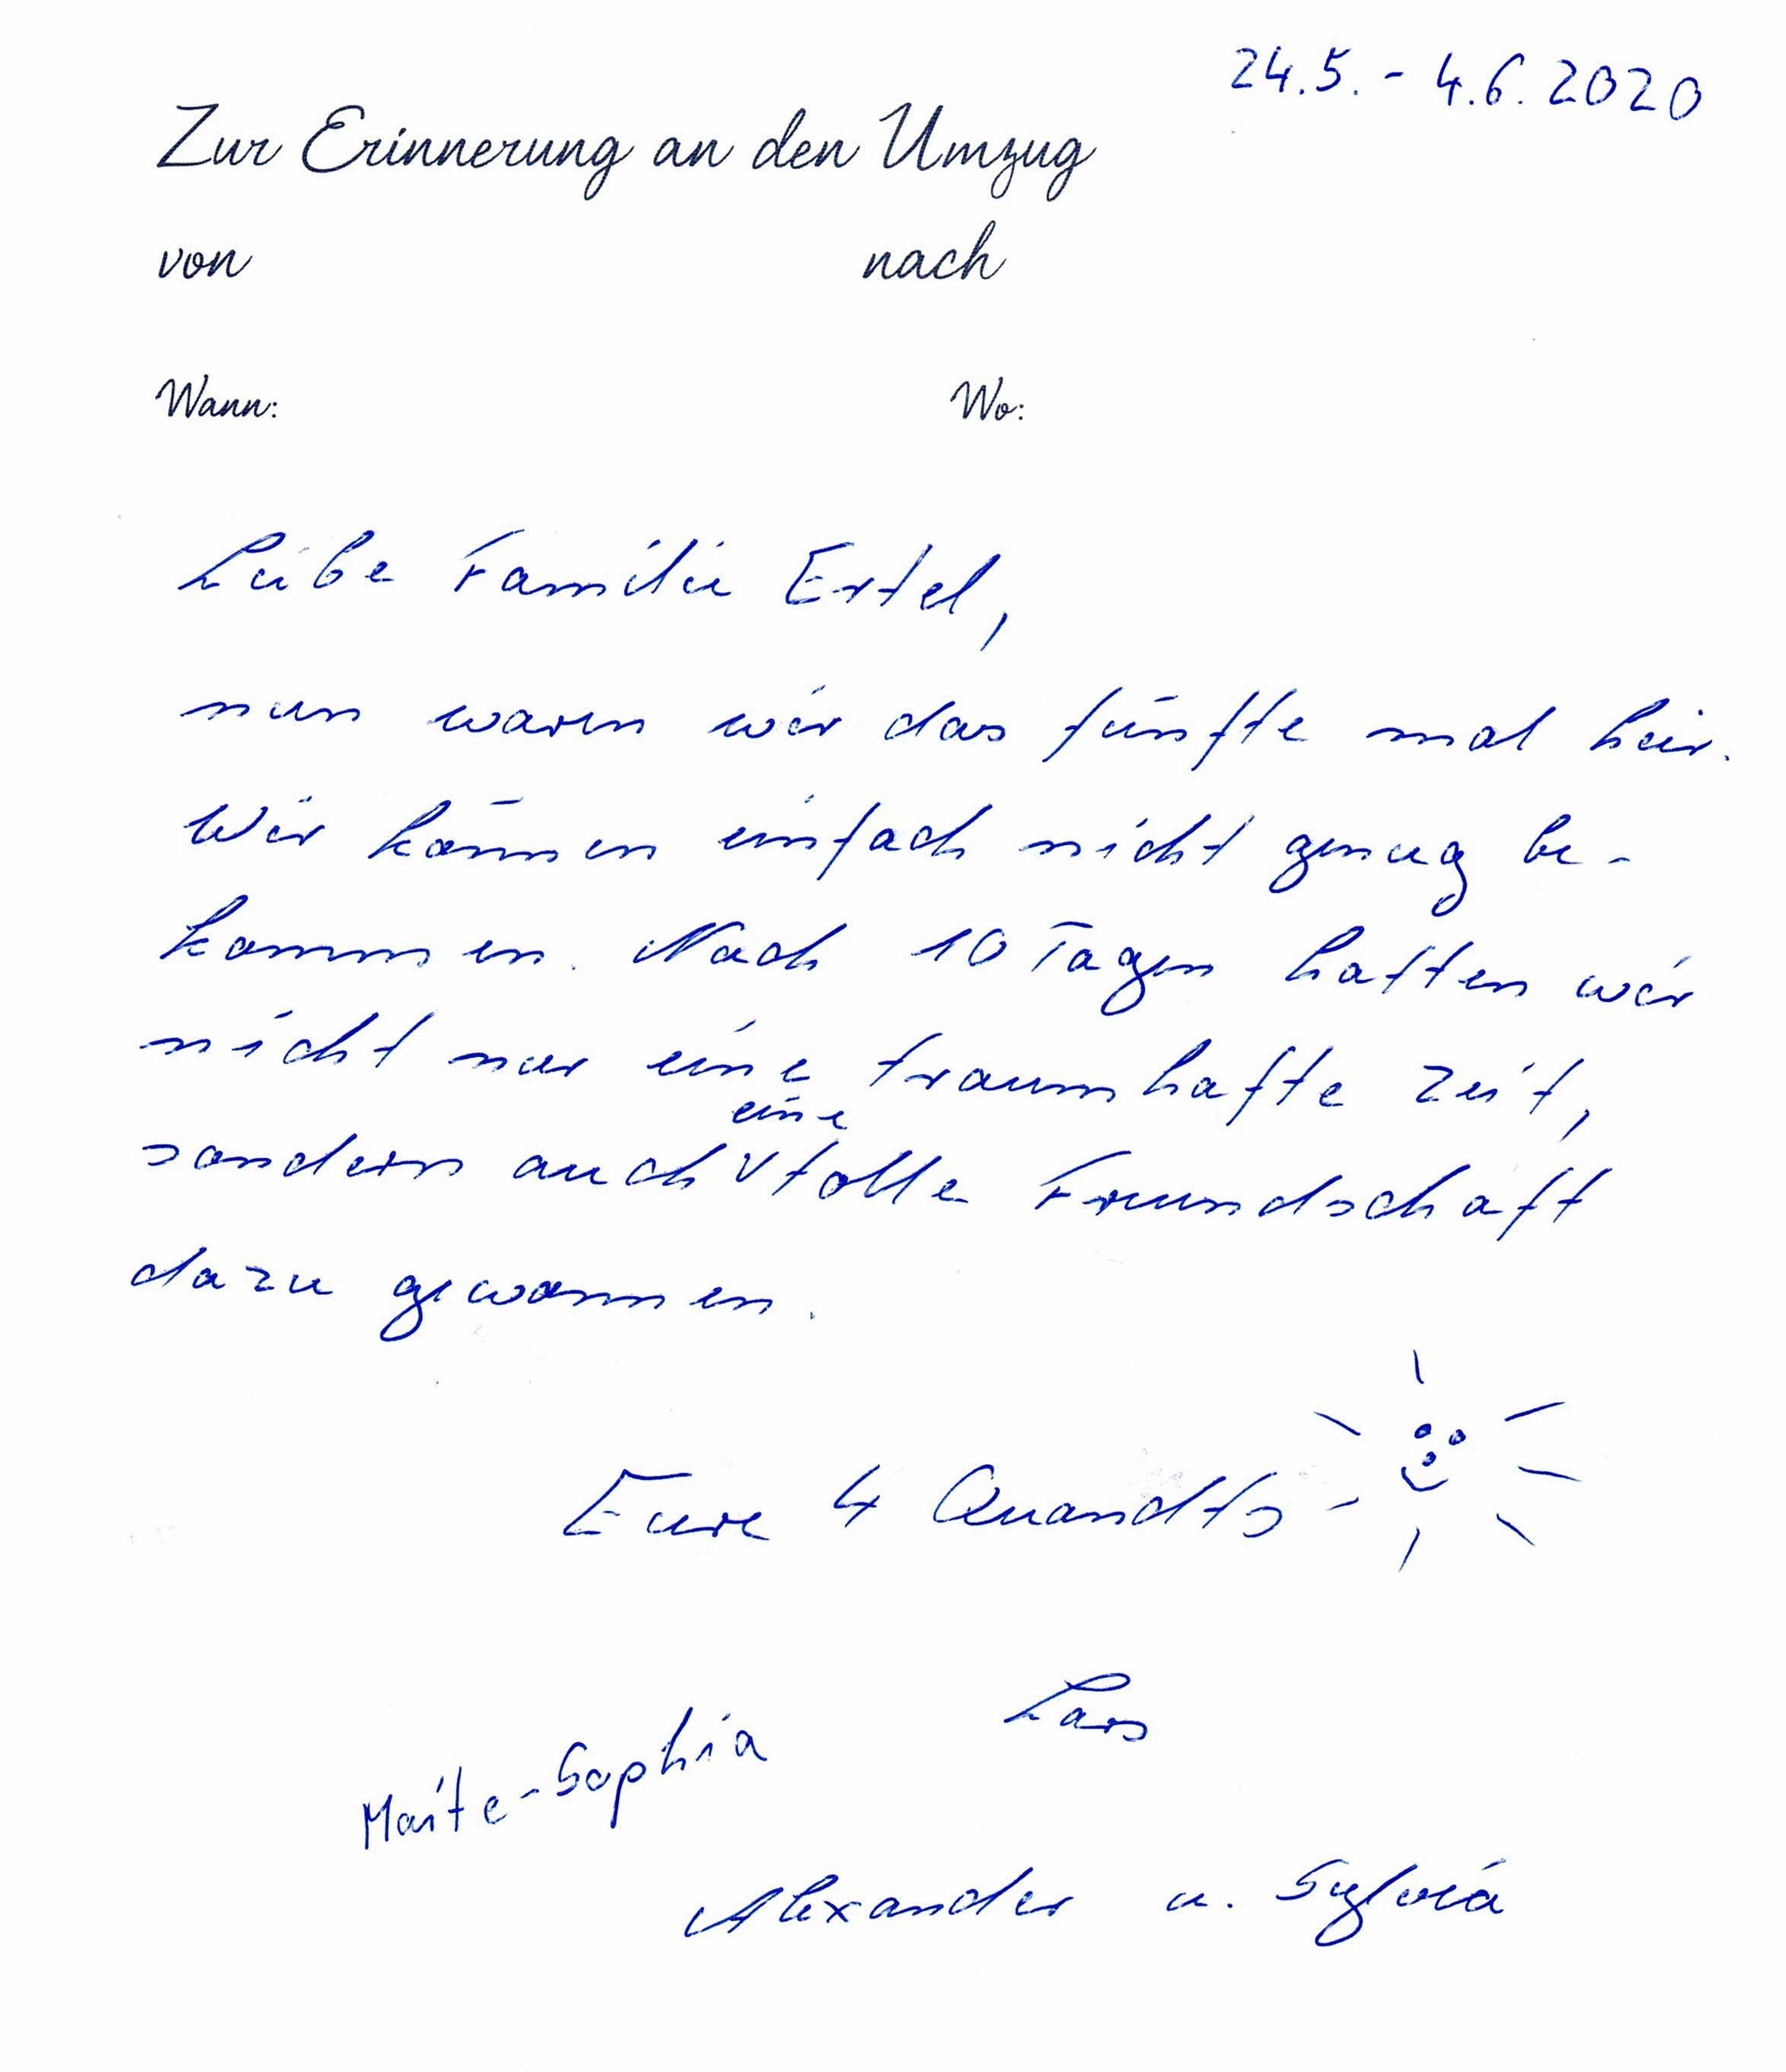 24.5. - 4.6.2020
Zur Erinnerung an den Umzug
von nach
Wann: Wo:
Liebe Familie Ertel,
nun waren wir das fünfte mal hier.
Wir können einfach nicht genug be-
kommen. Nach 10 Tagen hatten wir
nicht nur eine traumhafte Zeit,
eine
sondern auch tolle Freundschaft
dazu gewonnen.
Eure 4 Quandts
Lars
Maite-Sophia
Alexander u. Sylvia